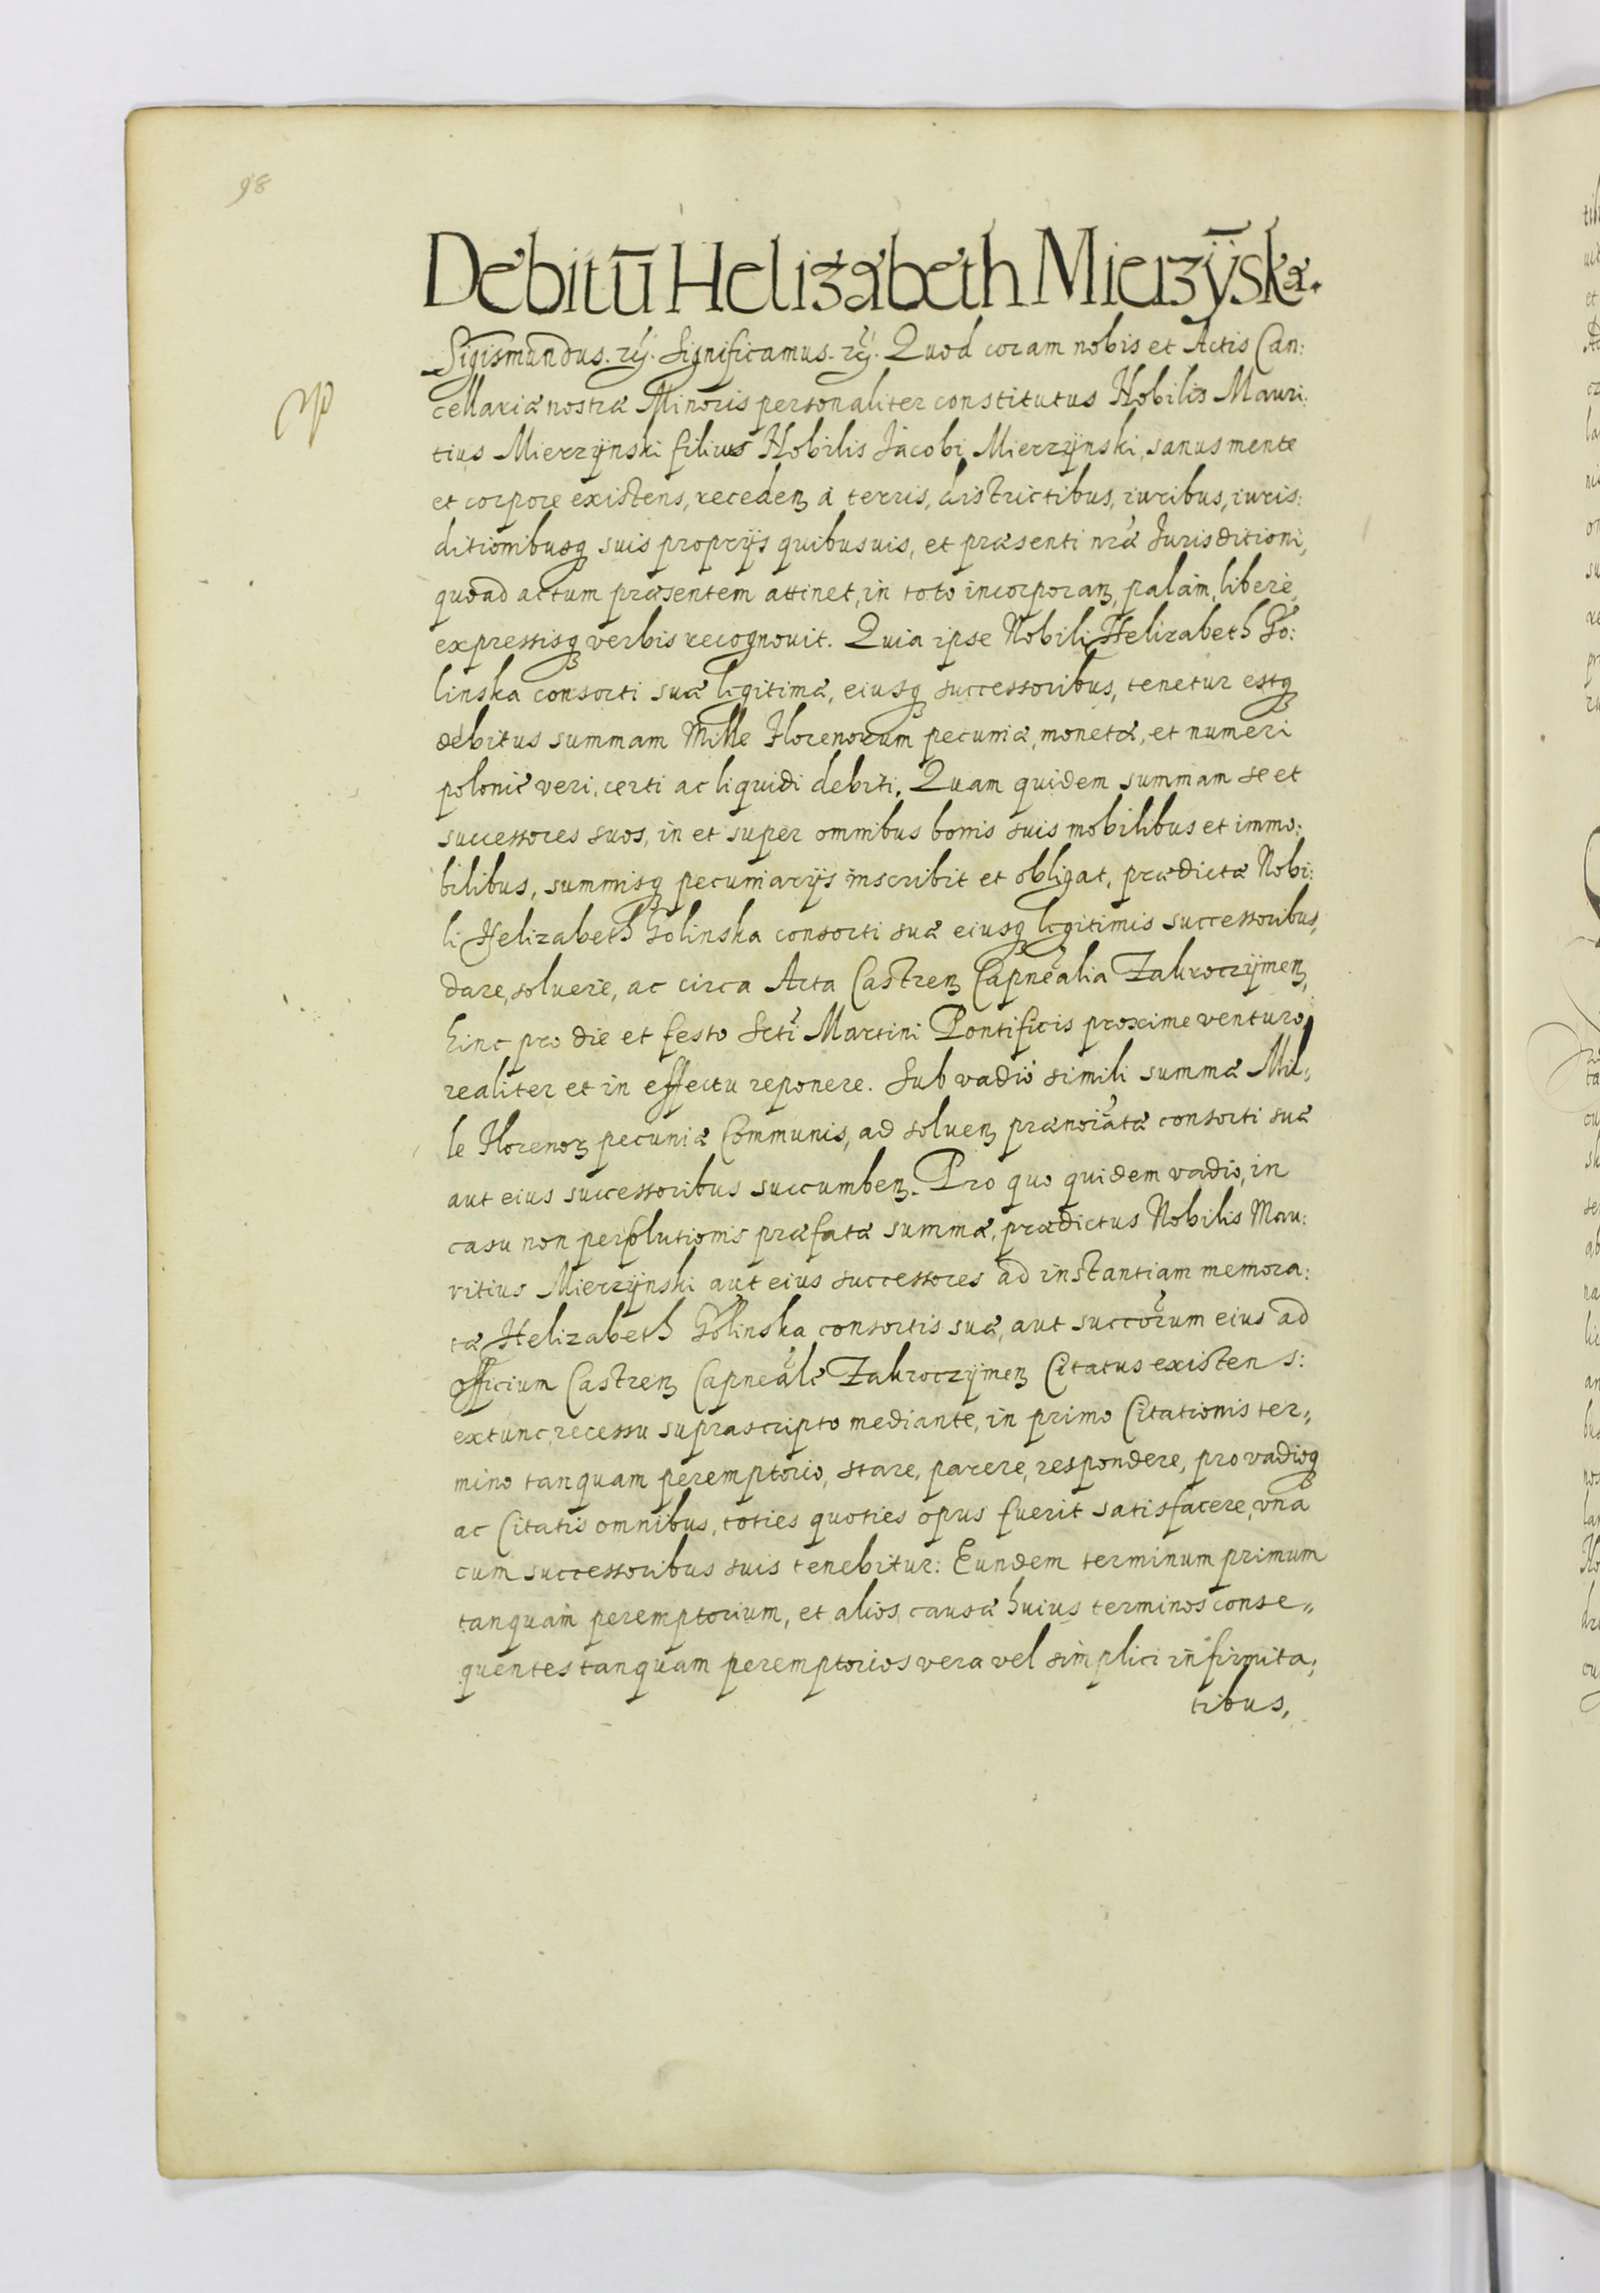 98
Debitū Helizabeth Mierzÿ̄ska.
Sigismundus. rẽ. Significamus. rẽ. Quod coram nobis et Actis Can:
cellariæ nostræ Minoris personaliter constitutus Nobilis Mauri:
tius Mierzÿnski filius Nobilis Jacobi Mierzÿnski, sanus mente
et corpore existens, recedenꝫ à terris, districtibus, iuribus, iuris:
ditionibusqꝫ suis proprÿs quibusuis, et præsenti nr̃æ Jurisditioni,
quoad actum præsentem attinet, in toto incorporanꝫ, palàm, liberè,
expressisqꝫ verbis recognouit. Quia ipse Nobili Helizabeth Go:
linska consorti suæ legitimæ, eiusqꝫ successoribus, tenetur estqꝫ
debitus summam Mille Florenorum pecuniæ, monetæ, et numeri
polonic̃ veri, certi ac liquidi debiti. Quam quidem summam se et
successores suos, in et super omnibus bonis suis mobilibus et immo:
bilibus, summisqꝫ pecuniarÿs inscribit et obligat, prædictæ Nobi:
li Helizabeth Golinska consorti suæ eiusqꝫ legitimis successoribus,
dare, soluere, ac circa Acta Castrenꝫ Capneãlia Zakroczÿmenꝫ,
hinc pro die et festo Scti Martini Pontificis proxime venturo,
realiter et in effectu reponere. Sub vadio simili summæ Mil„
le Florenoꝝ pecuniæ Communis, ad soluenꝫ prænoĩatæ consorti suæ
aut eius successoribus succumbenꝫ. Pro quo quidem vadio, in
casu non persolutionis præfatæ summæ, prædictus Nobilis Mau:
ritius Mierzÿnski aut eius successores ad instantiam memora:
tæ Helizabeth Golinska consortis suæ, aut succõrum eius ad
Officium Castrenꝫ Capneãle Zakroczÿmenꝫ Citatus existens:
extunc, recessu suprascripto mediante, in primo Citationis ter„
mino tanquam peremptorio, stare, parere, respondere, pro vadioqꝫ
ac Citatis omnibus, toties quoties opus fuerit satisfacere, vna
cum successoribus suis tenebitur: Eundem terminum primum
tanquam peremptorium, et alios causæ huius terminos conse„
quentes tanquam peremptorios vera vel simplici infirmita:
tibus,